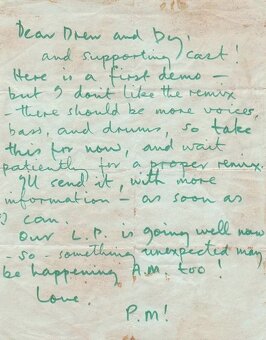 Dear Drew and Dy,
and supporting cast!
Here is a first demo —
but I don't like the remix
- there should be more voices,
bass, and drums, so take
this for now, and wait
patiently for a proper remix.
I'll send it, with more
information — as soon as
I can.
Our L.P. is going well now
- so - something unexpected may
be happening A.M. too!
Love.
P.M!